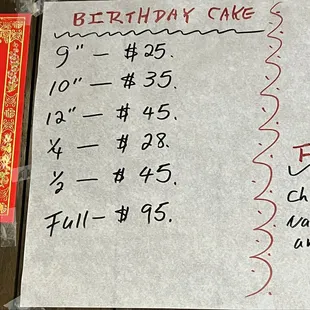 BIRTHDAY CAKE
9" — $25.
10" — $35.
12" — $45.
¼ — $28.
½ — $45.
Full — $95.
Ch
Na
an